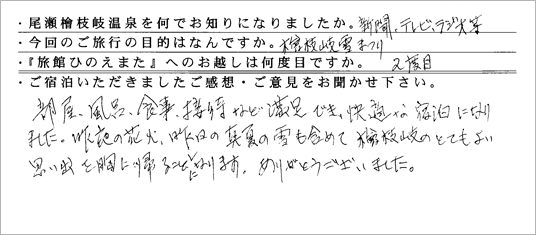 ・尾瀬檜枝岐温泉を何でお知りになりましたか。新聞、テレビ、ラジオ等
・今回のご旅行の目的はなんですか。檜枝岐雪まつり
・『旅館ひのえまた』へのお越しは何度目ですか。2度目
・ご宿泊いただきましたご感想・ご意見をお聞かせ下さい。
部屋、風呂、食事、接待など満足でき、快適な宿泊になり
ました。昨夜の花火、昨日の真夏の雪も含めて檜枝岐のとてもよい
思い出を胸に帰ることになります。ありがとうございました。